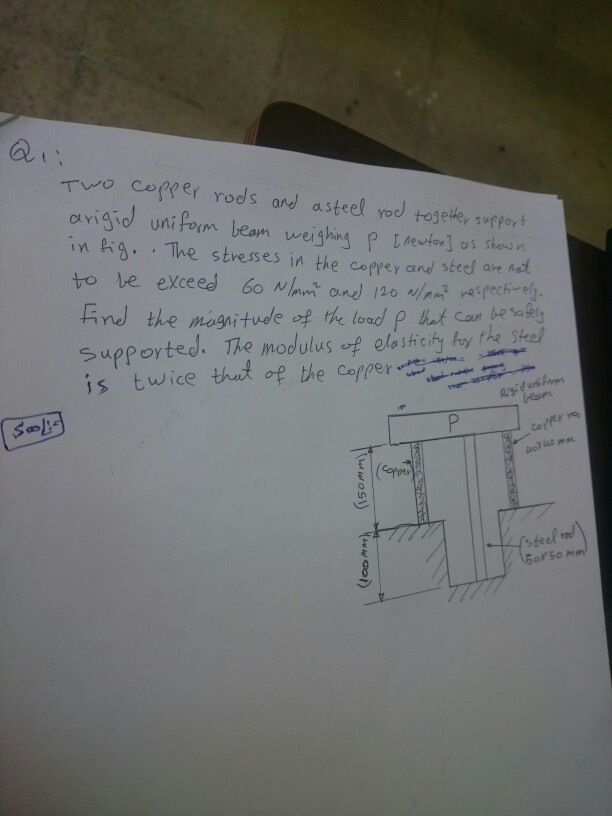 Q1:
Two copper rods and a steel rod together support
arigid uniform beam weighing P [newton] as shown
in fig. . The stresses in the copper and steel are not
to be exceed 60 N/mm² and 120 N/mm² respectively.
Find the magnitude of the load P that can be safely
supported. The modulus of elasticity for the steel
is twice that of the copper
Sol:-
Rigid uniform
beam
P
copper
40x40 mm
(copper)
(150mm)
(100mm)
(steel rod)
50x50 mm